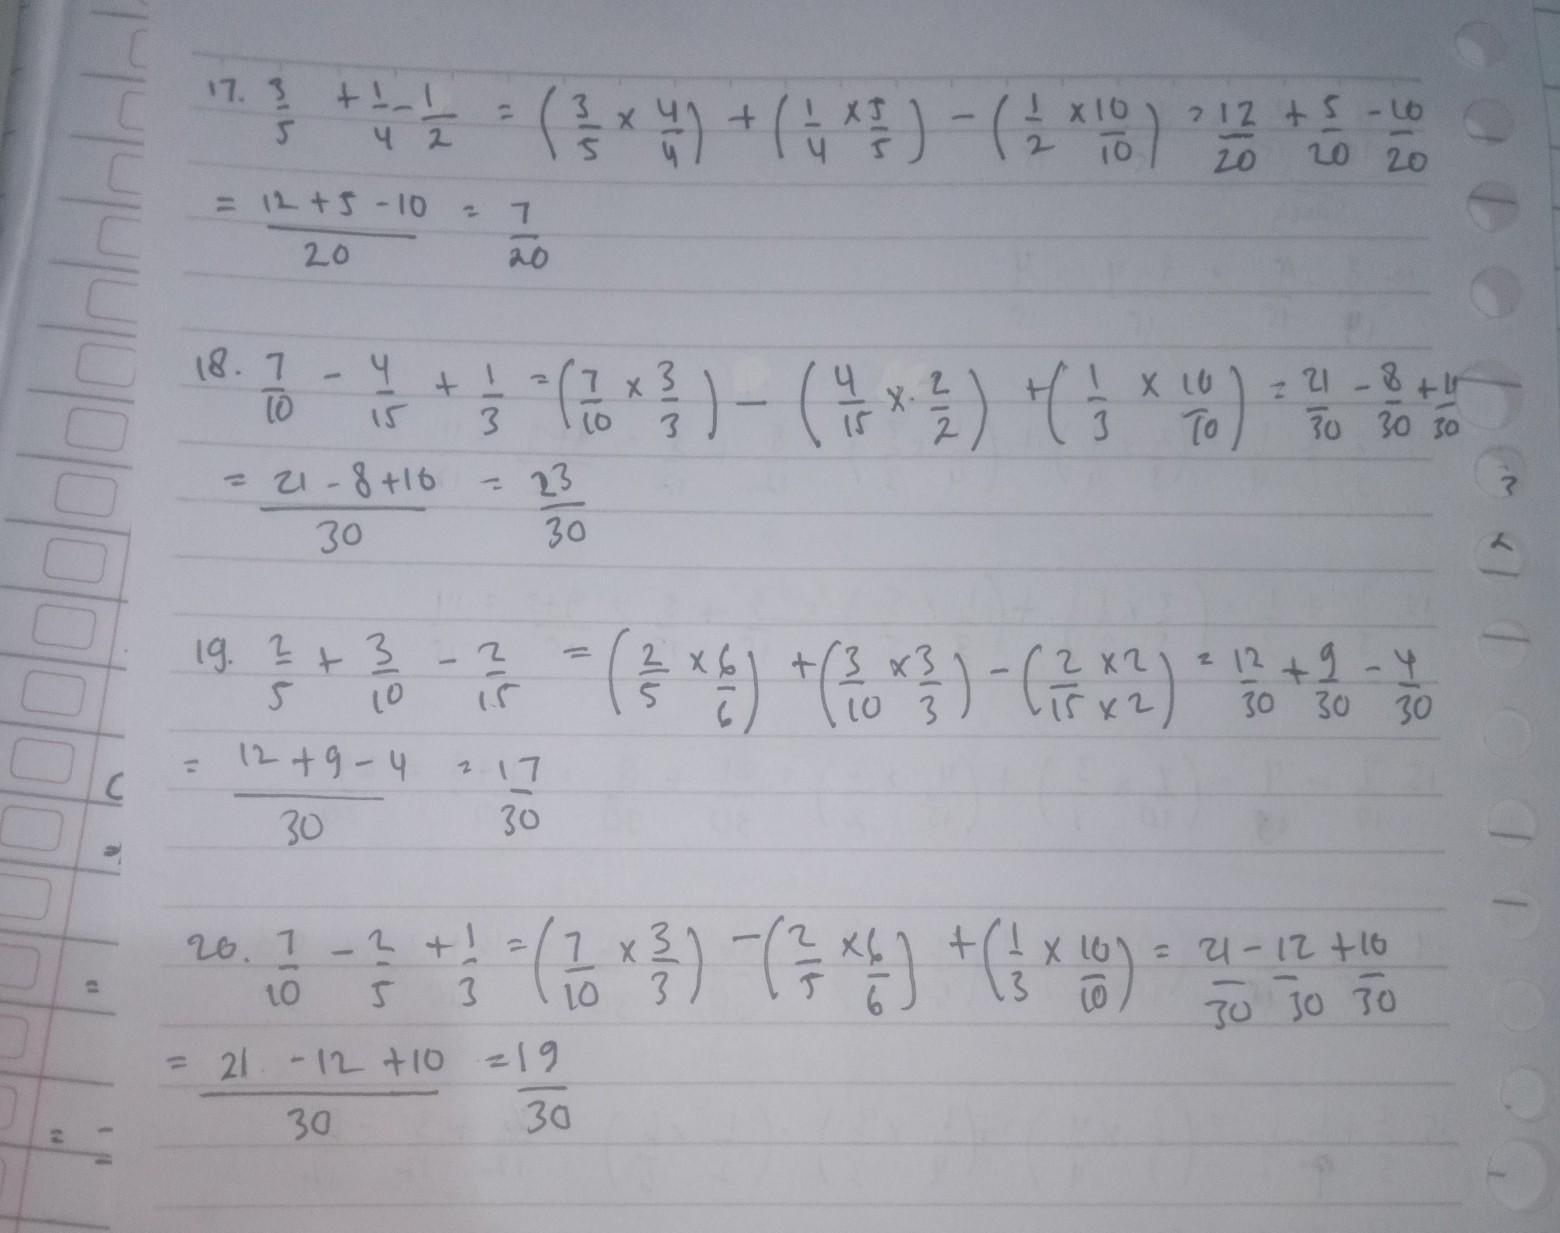 17. 3/5 + 1/4 - 1/2 = (3/5 × 4/4) + (1/4 × 5/5) - (1/2 × 10/10) = 12/20 + 5/20 - 10/20
= (12 + 5 - 10)/20 = 7/20
18. 7/10 - 4/15 + 1/3 = (7/10 × 3/3) - (4/15 × 2/2) + (1/3 × 10/10) = 21/30 - 8/30 + 10/30
= (21 - 8 + 10)/30 = 23/30
19. 2/5 + 3/10 - 2/15 = (2/5 × 6/6) + (3/10 × 3/3) - (2/15 × 2 × 2) = 12/30 + 9/30 - 4/30
= (12 + 9 - 4)/30 = 17/30
20. 7/10 - 2/5 + 1/3 = (7/10 × 3/3) - (2/5 × 6/6) + (1/3 × 10/10) = 21/30 - 12/30 + 10/30
= (21 - 12 + 10)/30 = 19/30